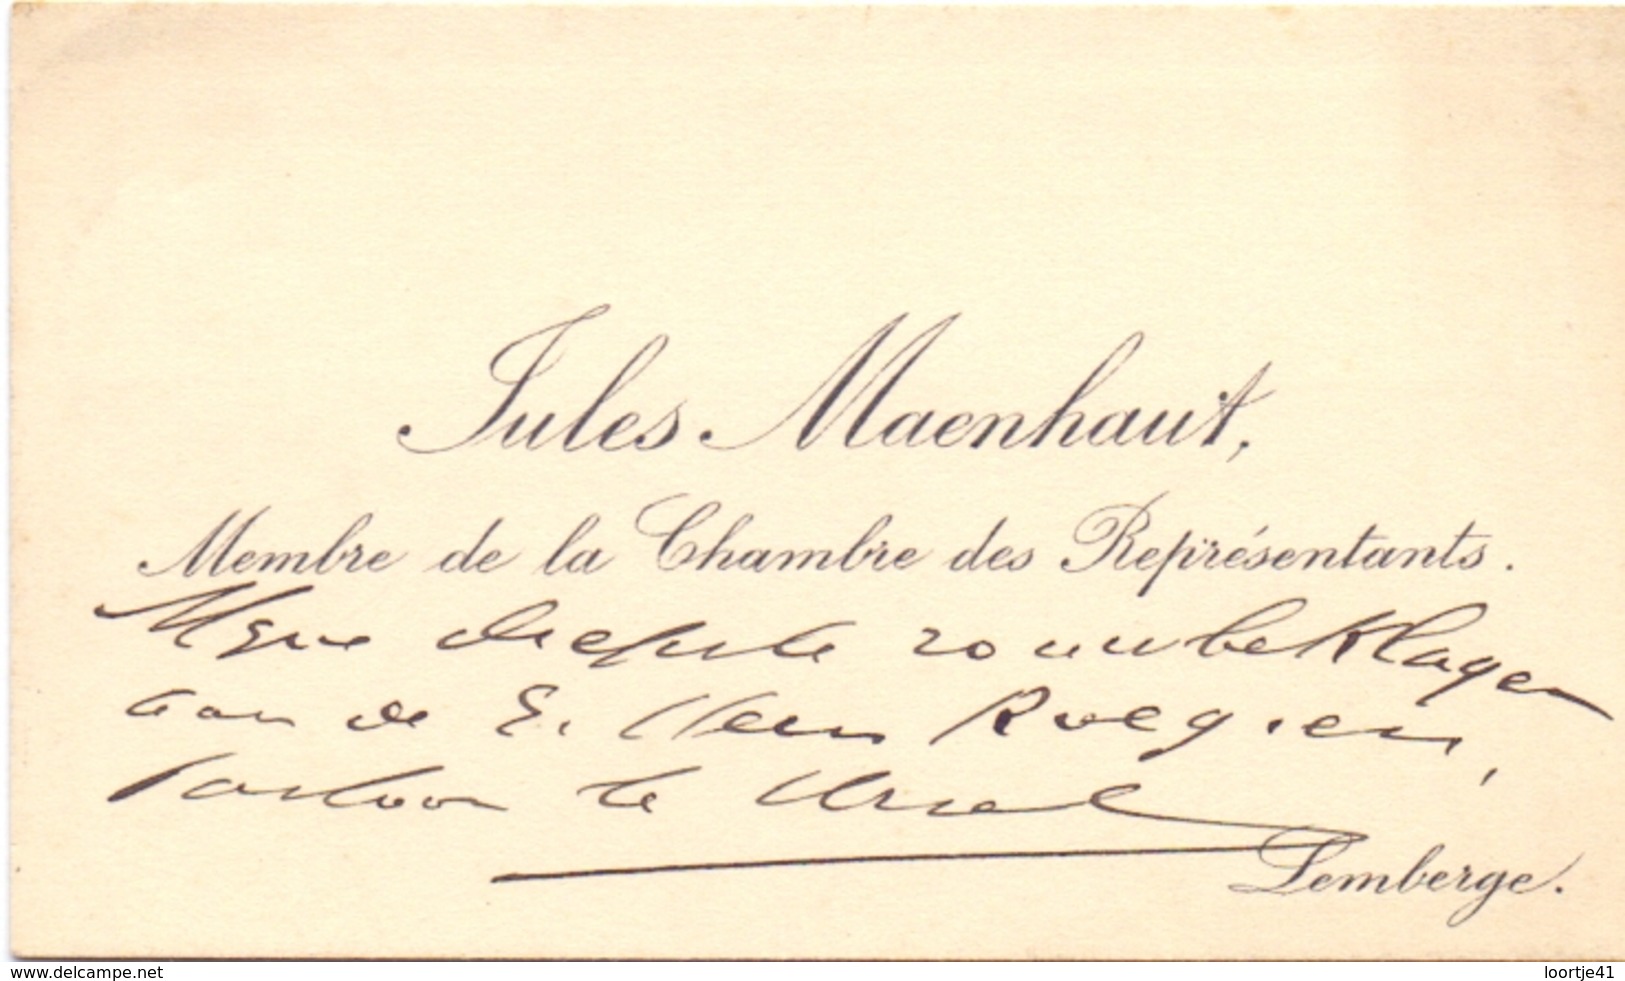 Jules Maenhaut,
Membre de la Chambre des Représentants.
Myne diepste rouwbeklagen
aan de E. Heer Roegiers,
Pastoor te
Lemberge.
www.delcampe.net
loortje41